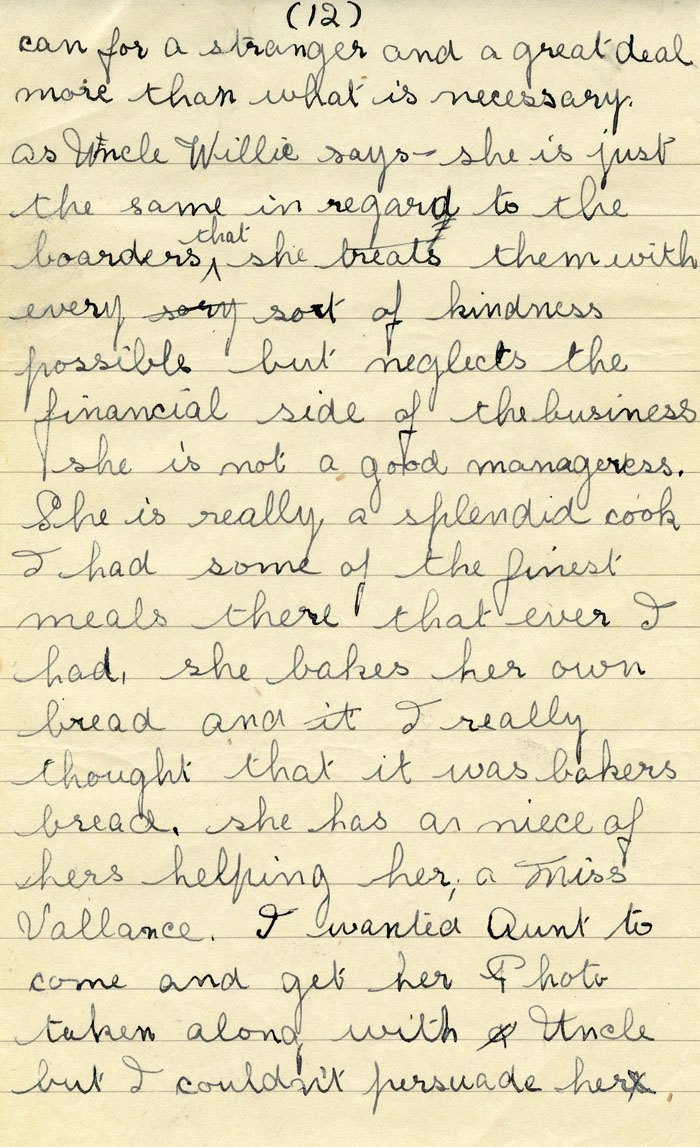 (12)
can for a stranger and a great deal
more than what is necessary.
as Uncle Willie says – she is just
the same in regard to the
boarders, that she treats them with
every sory sort of kindness
possible but neglects the
financial side of the business
she is not a good manageress.
She is really a splendid cook
I had some of the finest
meals there that ever I
had, she bakes her own
bread and it I really
thought that it was bakers
bread. she has a niece of
hers helping her, a Miss
Vallance. I wanted Aunt to
come and get her Photo
taken along with Uncle
but I couldn't persuade her